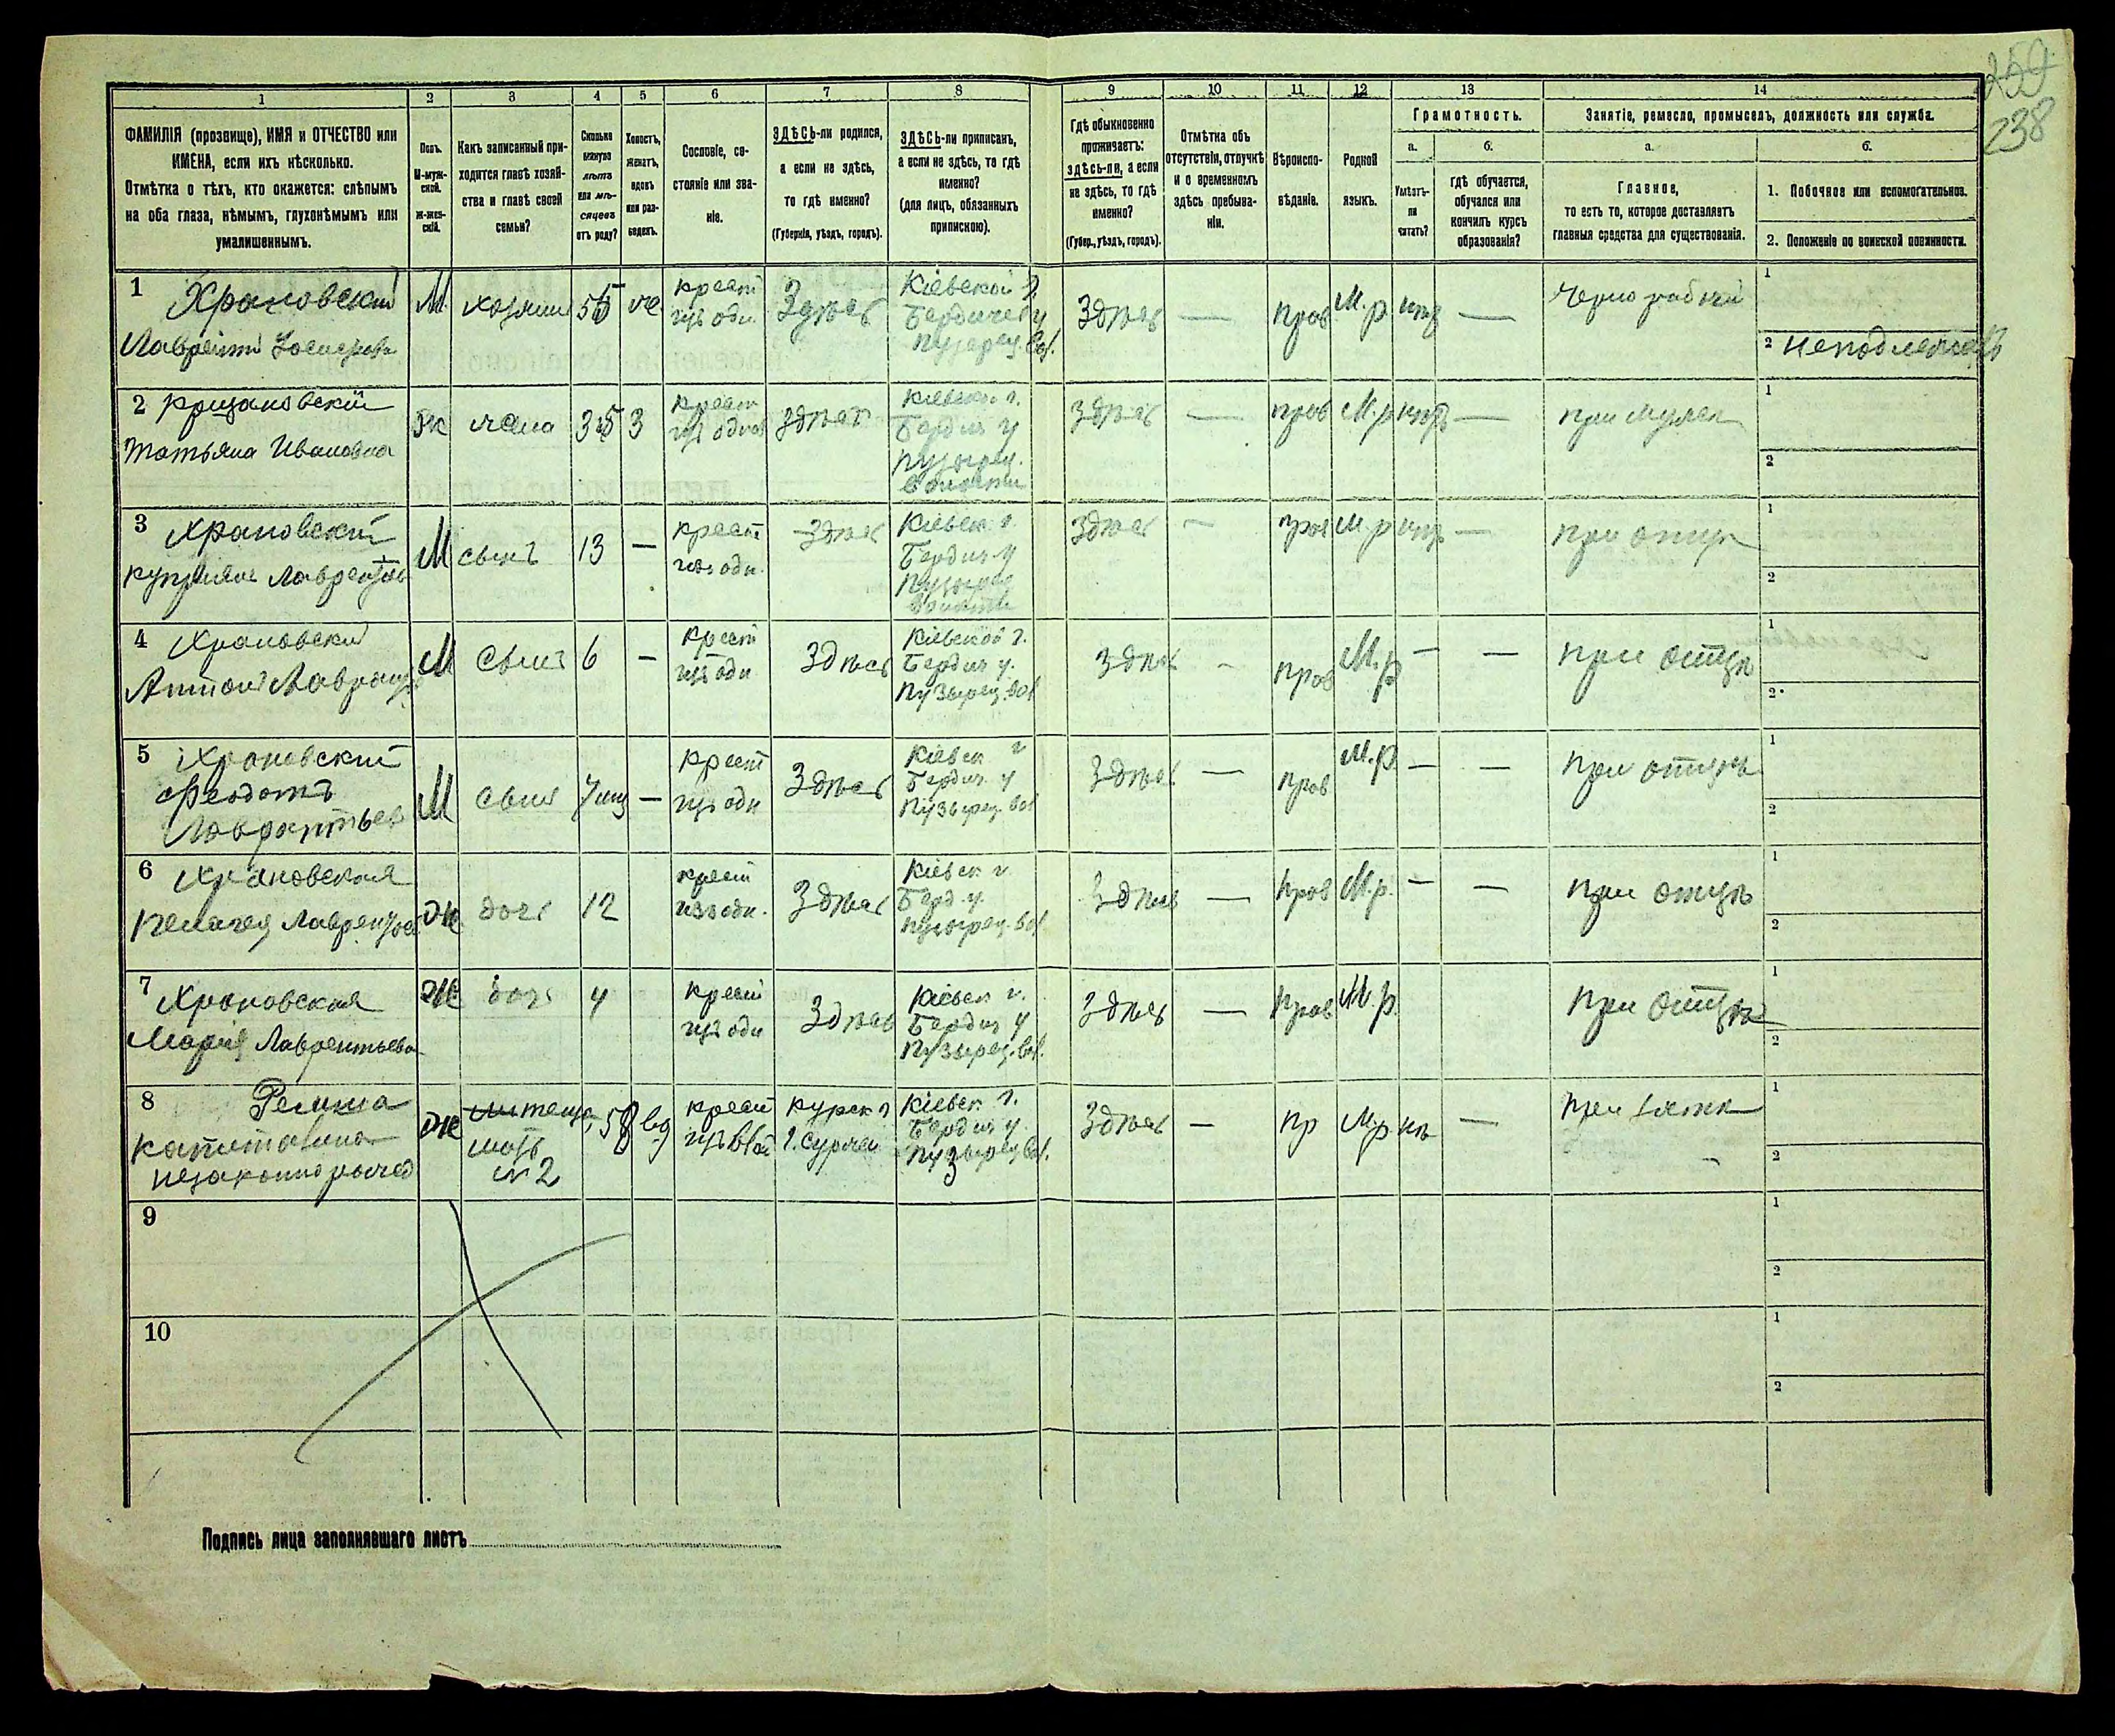 259
238
1 2 3 4 5 6 7 8 9 10 11 12 13 14
ФАМИЛІЯ (прозвище), ИМЯ и ОТЧЕСТВО или
ИМЕНА, если ихъ нѣсколько.
Отмѣтка о тѣхъ, кто окажется: слѣпымъ
на оба глаза, нѣмымъ, глухонѣмымъ или
умалишеннымъ.
Полъ.
М-муж-
ской.
Ж-жен-
скій.
Какъ записанный при-
ходится главѣ хозяй-
ства и главѣ своей
семьи?
Сколько
минуло
лѣтъ
или мѣ-
сяцевъ
отъ роду?
Холостъ,
женатъ,
вдовъ
или раз-
веденъ.
Сословіе, со-
стояніе или зва-
ніе.
ЗДѢСЬ-ли родился,
а если не здѣсь,
то гдѣ именно?
(Губернія, уѣздъ, городъ).
ЗДѢСЬ-ли приписанъ,
а если не здѣсь, то гдѣ
именно?
(для лицъ, обязанныхъ
припискою).
Гдѣ обыкновенно
проживаетъ:
здѣсь-ли, а если
не здѣсь, то гдѣ
именно?
(Губер., уѣздъ, городъ).
Отмѣтка объ
отсутствіи, отлучкѣ
и о временномъ
здѣсь пребыва-
ніи.
Вѣроиспо-
вѣданіе.
Родной
языкъ.
Грамотность.
а.
Умѣетъ-
ли
читать?
б.
гдѣ обучается,
обучался или
кончилъ курсъ
образованія?
Занятіе, ремесло, промыселъ, должность или служба.
а.
Главное,
то есть то, которое доставляетъ
главныя средства для существованія.
б.
1. Побочное или вспомогательное.
2. Положеніе по воинской повинности.
1 Храновскій
М
крест
Здѣсь
Кіевской г.
Здѣсь — пров М.р —
1
2
2
Татьяна Ивановна
Ж жена 35 З
крест
здѣсь
Кіевской г.
Бердич у
волости
здѣсь — пров М.р —
1
2
3 Храновскій
М сынъ 13 —
крест
изъ одн.
Здѣсь
Кіевск. г.
Бердич у
волости
Здѣсь — пров М.р —
1
2
4 Храновскій
Антонъ
М Сынъ 6 —
крест
изъ одн
Здѣсь
Кіевской г.
Бердич у.
Пузырец. вол
здѣсь — пров М.р — — при отцѣ
1
2
5 Храновскій
Феодотъ
Лаврентьев
М сынъ —
крест
изъ одн
Здѣсь
Кіевск г
Бердич. у
Пузырец вол
Здѣсь — пров М.р. — — при отцѣ
1
2
6 Храновская
Пелагея
Ж дочь 12
крест
изъ одн.
Здѣсь
Кіевск г.
Берд. у.
Пузырец. вол
Здѣсь — пров М.р. — — при отцѣ
1
2
7 Храновская
Марія Лаврентьева
Ж дочь 4
крест
изъ одн
Здѣсь
Кіевск г.
Бердич у
Пузырец. вол.
Здѣсь — пров М.р. при отцѣ
1
2
8
Ж
мать
№ 2
58
крест
Курск г
Кіевск г.
Бердич у.
Пузырец вол.
Здѣсь — пр М.р нѣ —
1
2
9
1
2
10
1
2
Подпись лица заполнявшаго листъ